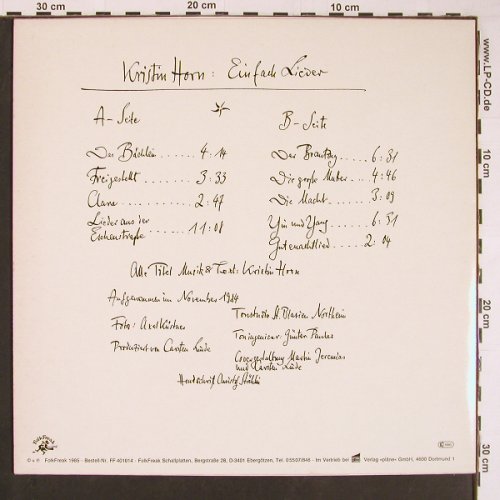 30 cm 20 cm 10 cm
www.LP-CD.de
10 cm
20 cm
30 cm
Kristin Horn: Einfach Lieder
A-Seite
Das Bächlein ...... 4:14
Freigestellt ...... 3:33
Clara ...... 2:47
Lieder aus der
Eschenstraße ...... 11:08
B-Seite
Der Brautzug ..... 6:31
Die große Mutter .... 4:46
Die Macht ..... 3:09
Yin und Yang ..... 6:51
Gutenachtlied .... 2:04
Alle Titel Musik & Text: Kristin Horn
Aufgenommen im November 1984
Foto: Axel Küstner
Produziert von Carsten Linde
Tonstudio St. Blasien Northeim
Toningenieur: Günter Pauler
Covergestaltung Martin Jeremias
und Carsten Linde
Handschrift Christof Stählin
FolkFreak
© + ℗ FolkFreak 1985 - Bestell-Nr. FF 401014 - FolkFreak Schallplatten, Bergstraße 2B, D-3401 Ebergötzen, Tel. 05507/845 - Im Vertrieb bei Verlag »pläne« GmbH, 4600 Dortmund 1